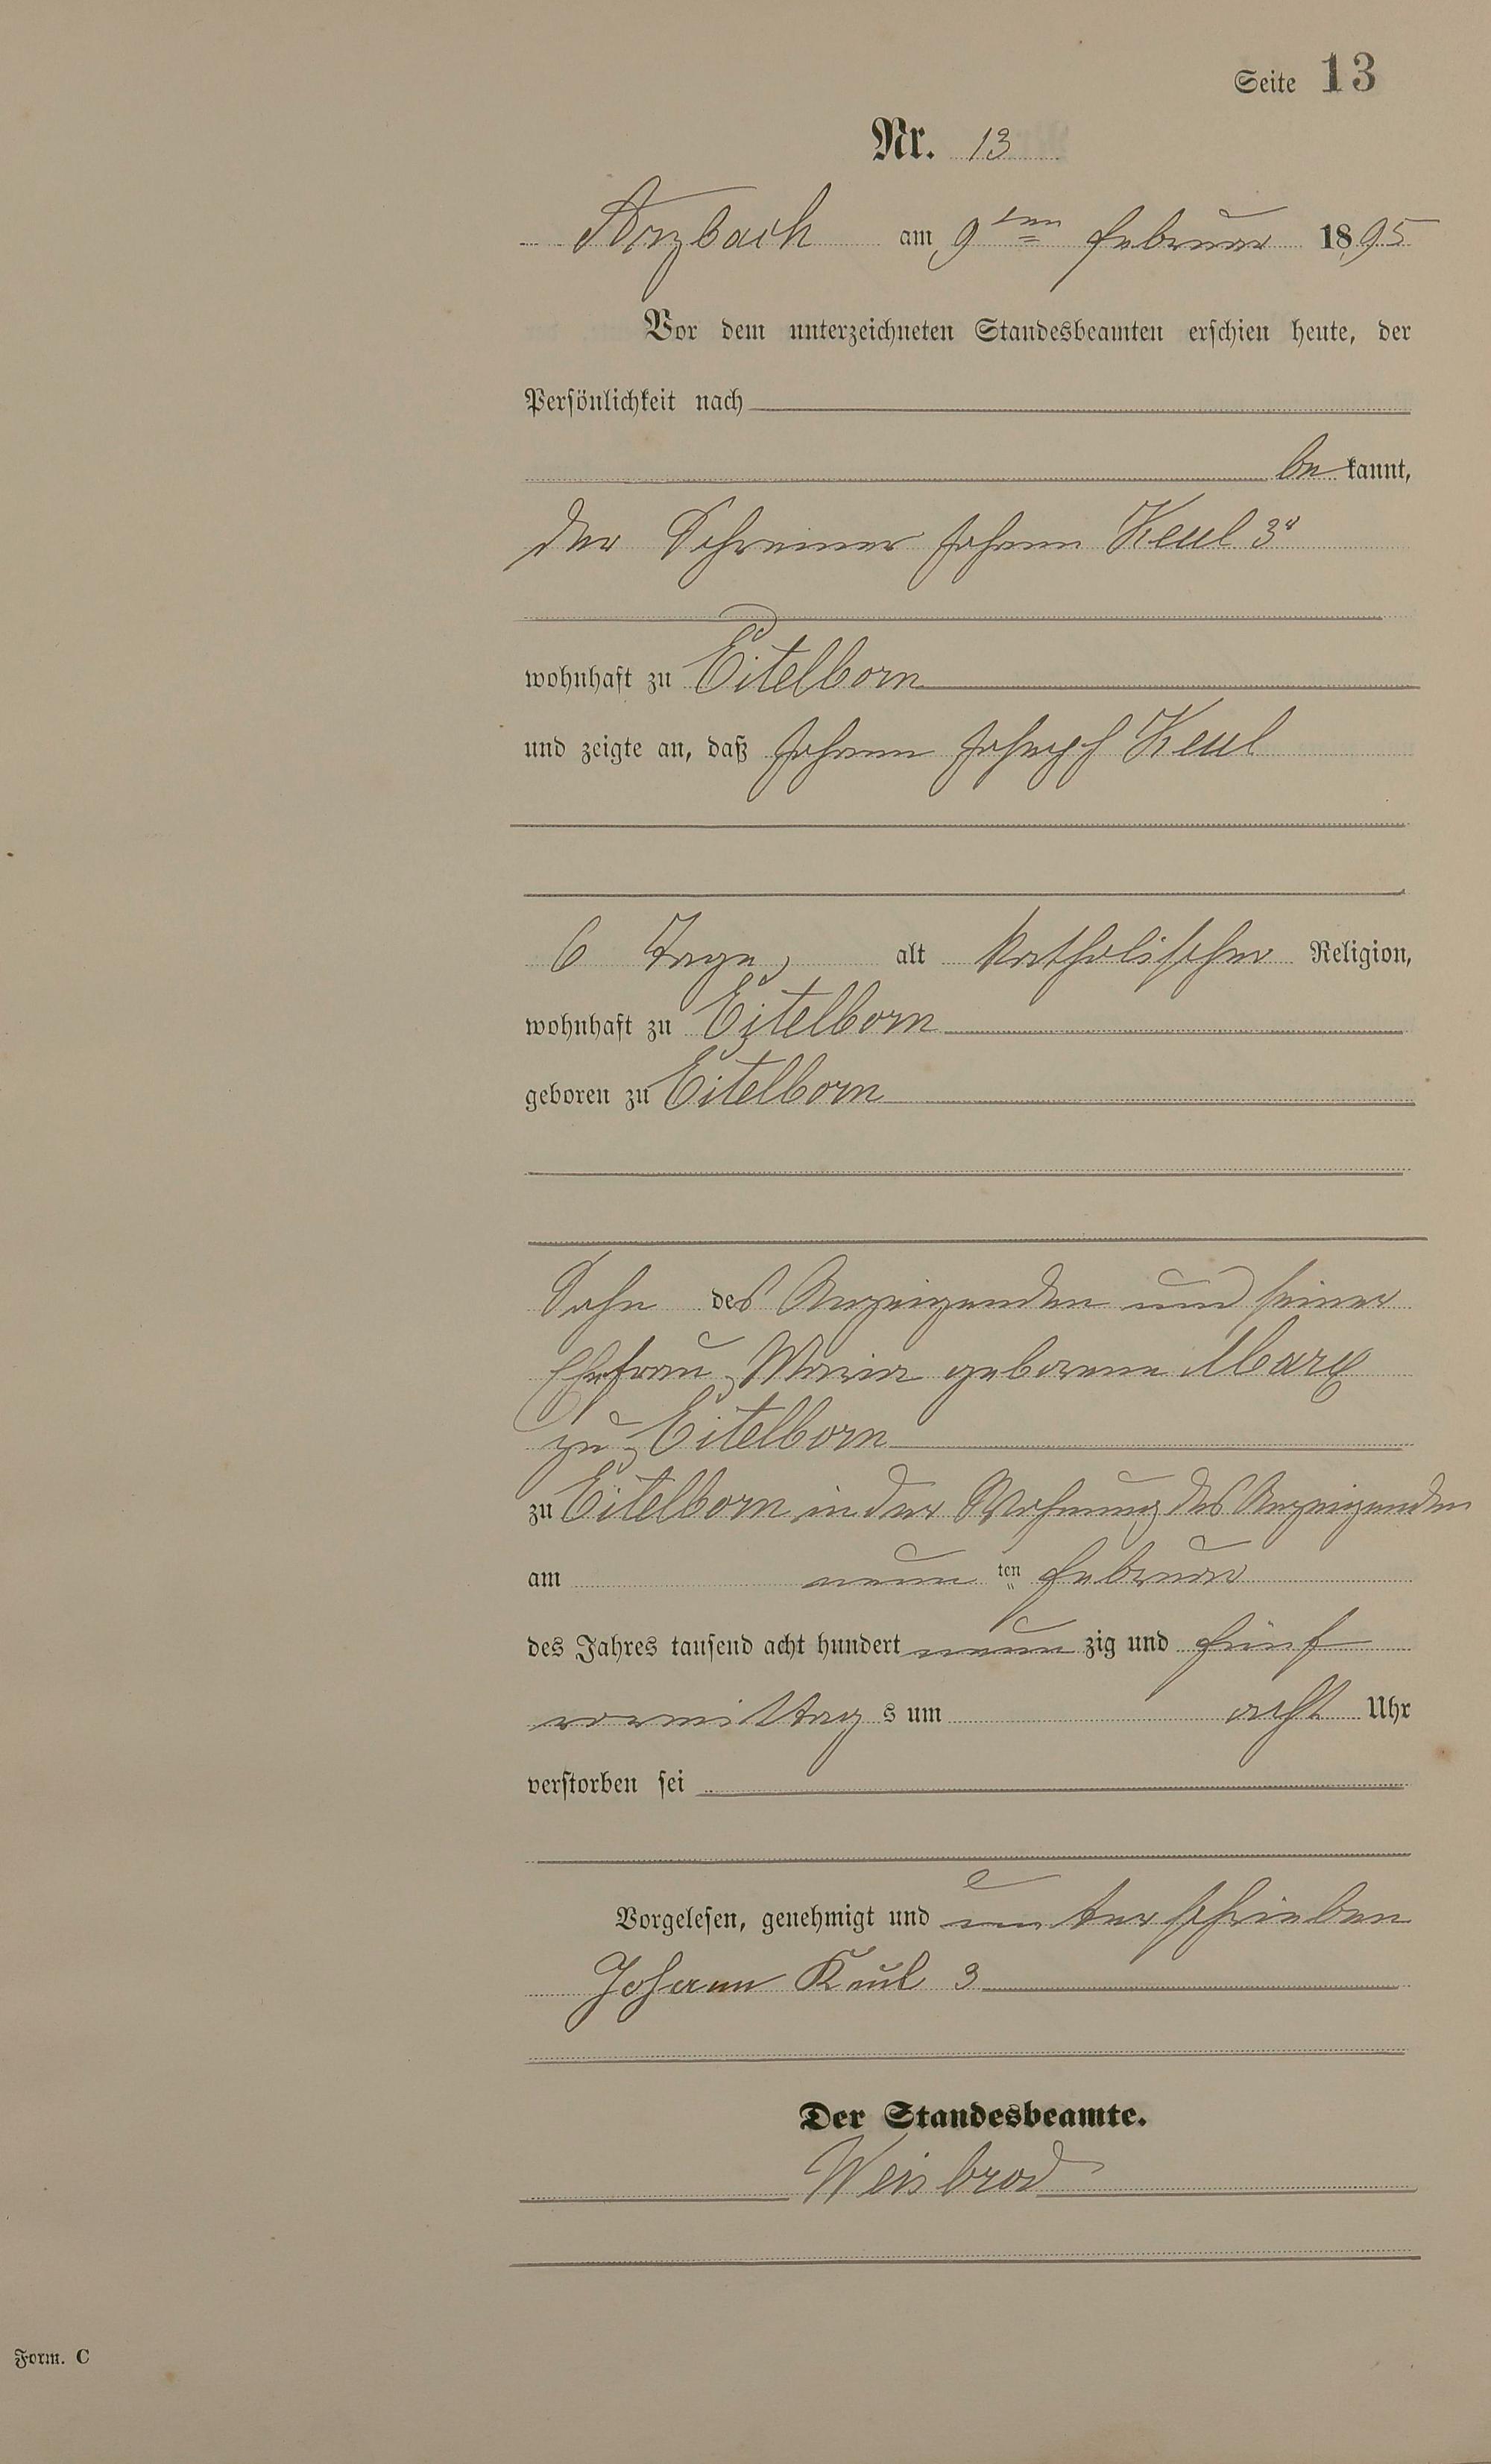 Seite 13
Nr. 13
Arzbach am 9ten Februar 1895
Vor dem unterzeichneten Standesbeamten erschien heute, der
Persönlichkeit nach
be kannt,
der Schreiner Johann Keul 3r
wohnhaft zu Eitelborn
und zeigte an, daß Johann Joseph Keul
6 Tage, alt katholischer Religion,
wohnhaft zu Eitelborn
geboren zu Eitelborn
Sohn des Anzeigenden und seiner
Ehefrau, Maria geborene Marx
zu Eitelborn
zu Eitelborn in der Wohnung des Anzeigenden
am neun ten Februar
des Jahres tausend acht hundert neun zig und fünf
vormittag s um acht Uhr
verstorben sei
Vorgelesen, genehmigt und unterschrieben
Johann Keul 3
Der Standesbeamte.
Weisbrod
Form. C